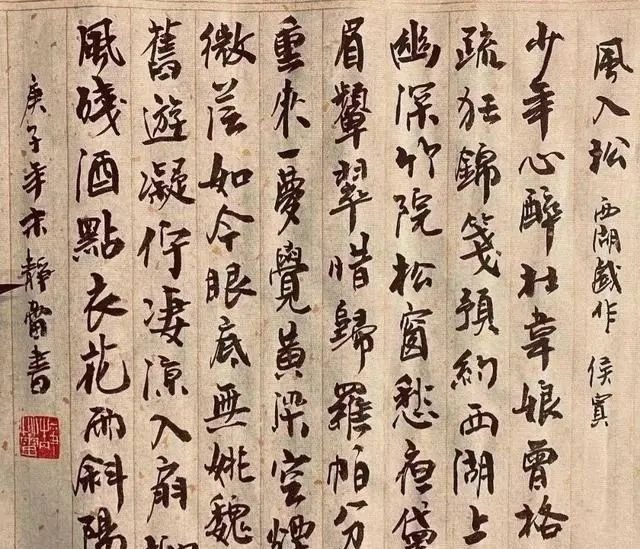 風入松 西湖戲作 侯寘
少年心醉杜韋娘曾格
疏狂錦箋預約西湖上
幽深竹院松窗愁夜黛
眉顰翠惜歸羅帕分
重來一夢覺黃梁空煙
微茫如今眼底無姚魏
舊遊凝佇凄涼入扇
風殘酒點衣花雨斜陽
庚子年末靜雷書